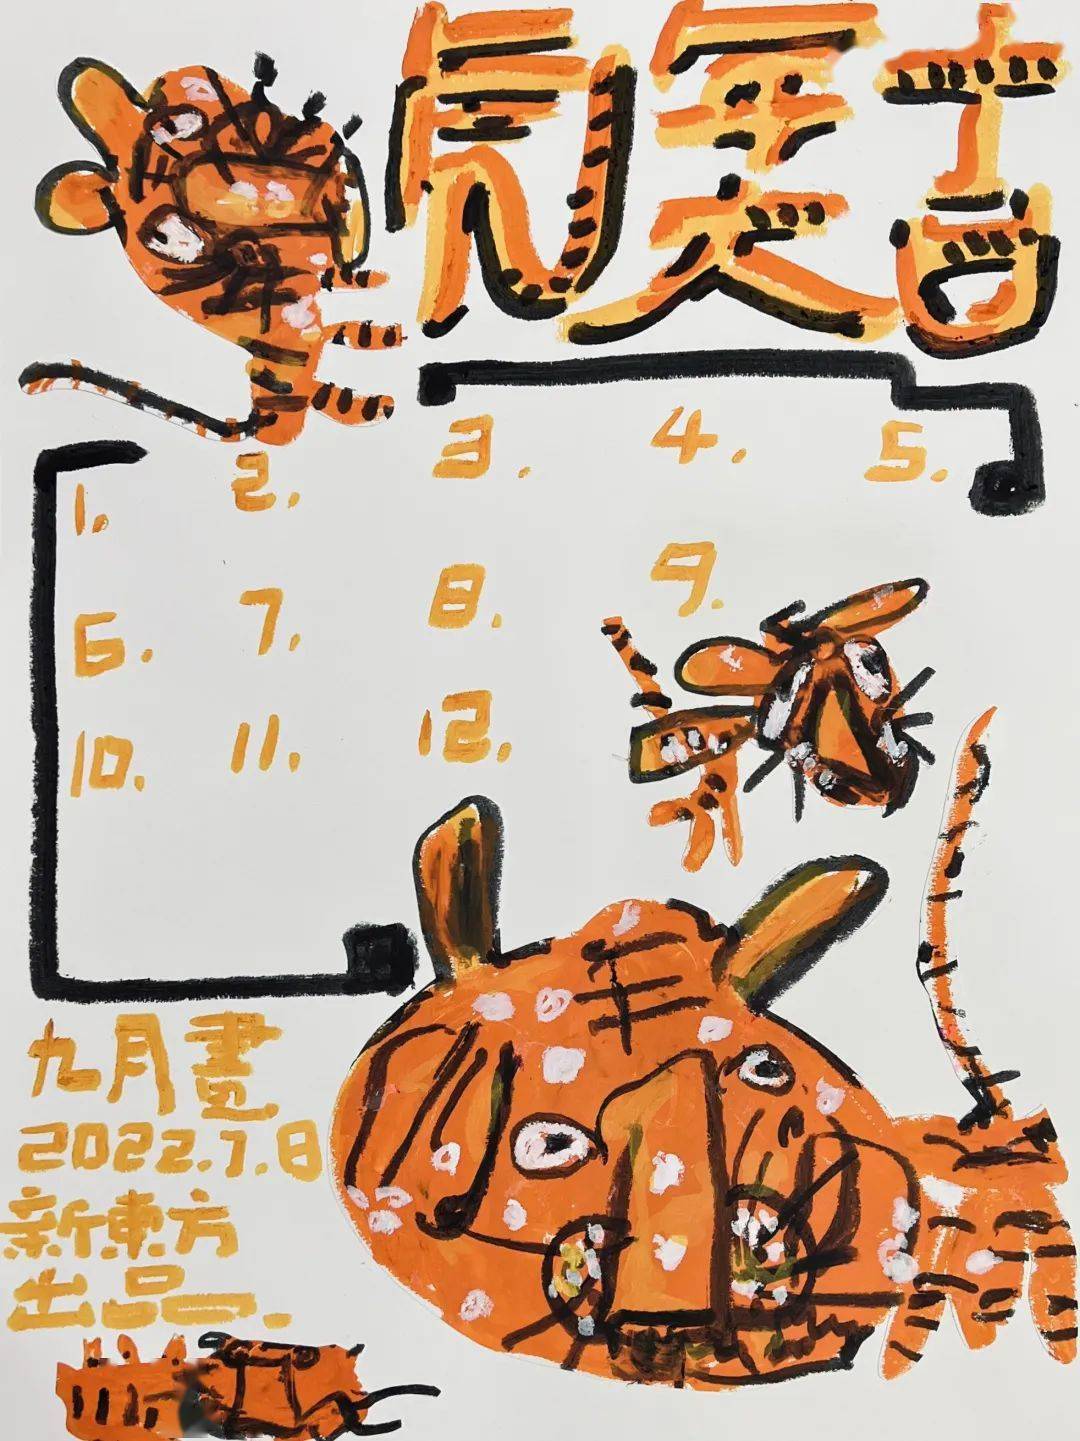 虎 吉
1. 2. 3. 4. 5.
6. 7. 8. 9.
10. 11. 12.
九月畫
2022.7.8
新東方
出品一.